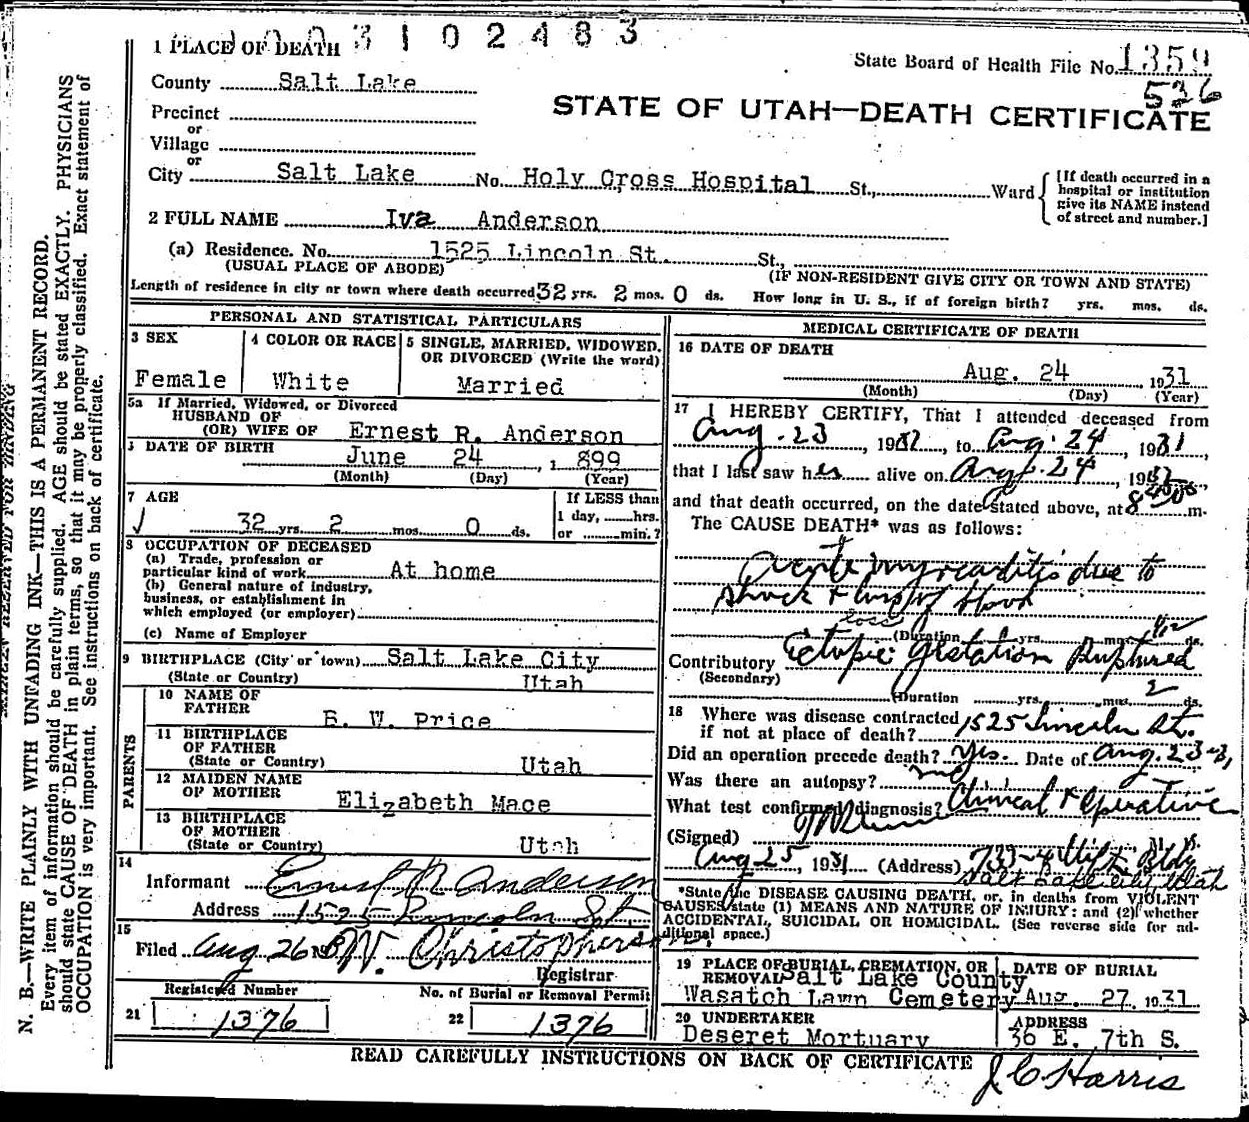 3 1 0 2 4 8 3
1 PLACE OF DEATH
State Board of Health File No. 1359
536
County Salt Lake
STATE OF UTAH—DEATH CERTIFICATE
Precinct
or
Village
or
City Salt Lake No. Holy Cross Hospital St., Ward
[If death occurred in a
hospital or institution
give its NAME instead
of street and number.]
2 FULL NAME Iva Anderson
(a) Residence. No. 1525 Lincoln St. St.,
(USUAL PLACE OF ABODE) (IF NON-RESIDENT GIVE CITY OR TOWN AND STATE)
Length of residence in city or town where death occurred 32 yrs. 2 mos. 0 ds. How long in U. S., if of foreign birth? yrs. mos. ds.
PERSONAL AND STATISTICAL PARTICULARS
3 SEX
Female
4 COLOR OR RACE
White
5 SINGLE, MARRIED, WIDOWED,
OR DIVORCED (Write the word)
Married
5a If Married, Widowed, or Divorced
HUSBAND OF
(OR) WIFE OF Ernest R. Anderson
DATE OF BIRTH
June 24, 1899
(Month) (Day) (Year)
7 AGE
32 yrs. 2 mos. 0 ds.
If LESS than
1 day, hrs.
or min.?
8 OCCUPATION OF DECEASED
(a) Trade, profession or
particular kind of work At home
(b) General nature of industry,
business, or establishment in
which employed (or employer)
(c) Name of Employer
9 BIRTHPLACE (City or town) Salt Lake City
(State or Country) Utah
PARENTS
10 NAME OF
FATHER W. Price
11 BIRTHPLACE
OF FATHER
(State or Country) Utah
12 MAIDEN NAME
OF MOTHER Elizabeth Mace
13 BIRTHPLACE
OF MOTHER
(State or Country) Utah
14
Informant Ernest R Anderson
Address 1525 Lincoln St
15
Filed Aug 26 W. Christopherson
Registrar
Registered Number
21 1376
No. of Burial or Removal Permit
22 1376
MEDICAL CERTIFICATE OF DEATH
16 DATE OF DEATH
Aug. 24, 1931
(Month) (Day) (Year)
17 I HEREBY CERTIFY, That I attended deceased from
Aug. 23, 1931, to Aug. 24, 1931,
that I last saw her alive on Aug. 24, 1931,
and that death occurred, on the date stated above, at 8 m.
The CAUSE DEATH* was as follows:
Acute myocarditis due to
shock & loss of blood
loss
(Duration yrs. mos. 1/2 ds.
Contributory Ectopic Gestation Ruptured
(Secondary)
(Duration yrs. mos. 2 ds.
18 Where was disease contracted
if not at place of death? 1525 Lincoln St.
Did an operation precede death? Yes. Date of Aug. 23-31
Was there an autopsy? no
What test confirmed diagnosis? Clinical & Operative
(Signed) M. D.
Aug 25, 1931 (Address)
Salt Lake City, Utah
*State the DISEASE CAUSING DEATH, or, in deaths from VIOLENT
CAUSES, state (1) MEANS AND NATURE OF INJURY; and (2) whether
ACCIDENTAL, SUICIDAL OR HOMICIDAL. (See reverse side for ad-
ditional space.)
19 PLACE OF BURIAL, CREMATION, OR
REMOVAL Salt Lake County
Wasatch Lawn Cemetery
DATE OF BURIAL
Aug. 27, 1931
20 UNDERTAKER
Deseret Mortuary
ADDRESS
36 E. 7th S.
READ CAREFULLY INSTRUCTIONS ON BACK OF CERTIFICATE
J C Harris
MARGIN RESERVED FOR BINDING
N. B.—WRITE PLAINLY WITH UNFADING INK—THIS IS A PERMANENT RECORD.
Every item of information should be carefully supplied. AGE should be stated EXACTLY. PHYSICIANS
should state CAUSE OF DEATH in plain terms, so that it may be properly classified. Exact statement of
OCCUPATION is very important. See instructions on back of certificate.